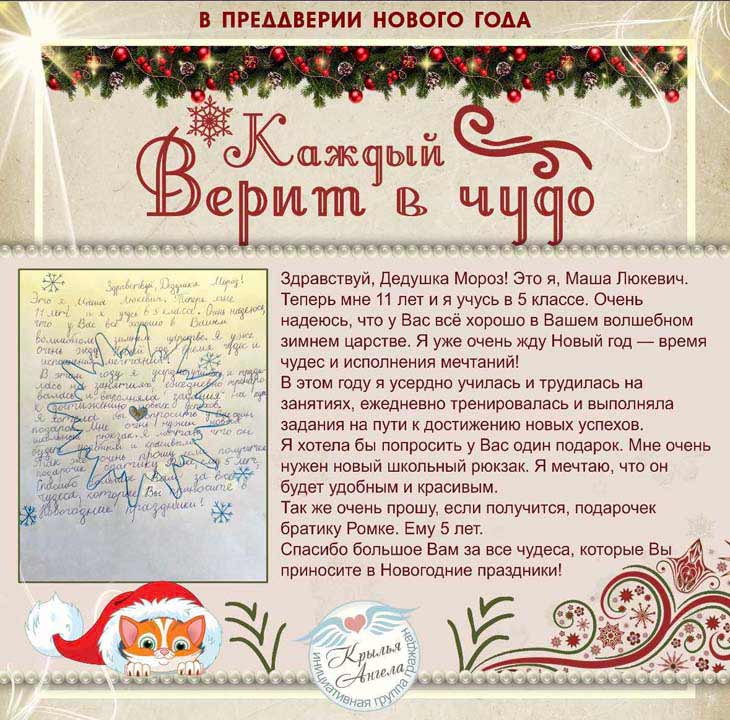 В ПРЕДДВЕРИИ НОВОГО ГОДА
Каждый
Верит в чудо
Здравствуй, Дедушка Мороз!
Это я Маша Люкевич. Теперь мне
11 лет и я учусь в 5 классе. Очень надеюсь,
что у Вас всё хорошо в Вашем
волшебном зимнем царстве. Я уже
очень жду Новый год — время чудес и
исполнения мечтаний!
В этом году я усердно училась и труди-
лась на занятиях, ежедневно трениро-
валась и выполняла задания на пути
к достижению новых успехов.
Я хотела бы попросить у Вас один
подарок. Мне очень нужен новый
школьный рюкзак. Я мечтаю, что он
будет удобным и красивым.
Так же очень прошу, если получится,
подарочек братику Ромке. Ему 5 лет.
Спасибо большое Вам за все
чудеса, которые Вы приносите в
Новогодние праздники!
Здравствуй, Дедушка Мороз! Это я, Маша Люкевич.
Теперь мне 11 лет и я учусь в 5 классе. Очень
надеюсь, что у Вас всё хорошо в Вашем волшебном
зимнем царстве. Я уже очень жду Новый год — время
чудес и исполнения мечтаний!
В этом году я усердно училась и трудилась на
занятиях, ежедневно тренировалась и выполняла
задания на пути к достижению новых успехов.
Я хотела бы попросить у Вас один подарок. Мне очень
нужен новый школьный рюкзак. Я мечтаю, что он
будет удобным и красивым.
Так же очень прошу, если получится, подарочек
братику Ромке. Ему 5 лет.
Спасибо большое Вам за все чудеса, которые Вы
приносите в Новогодние праздники!
Крылья
Ангела
инициативная группа граждан